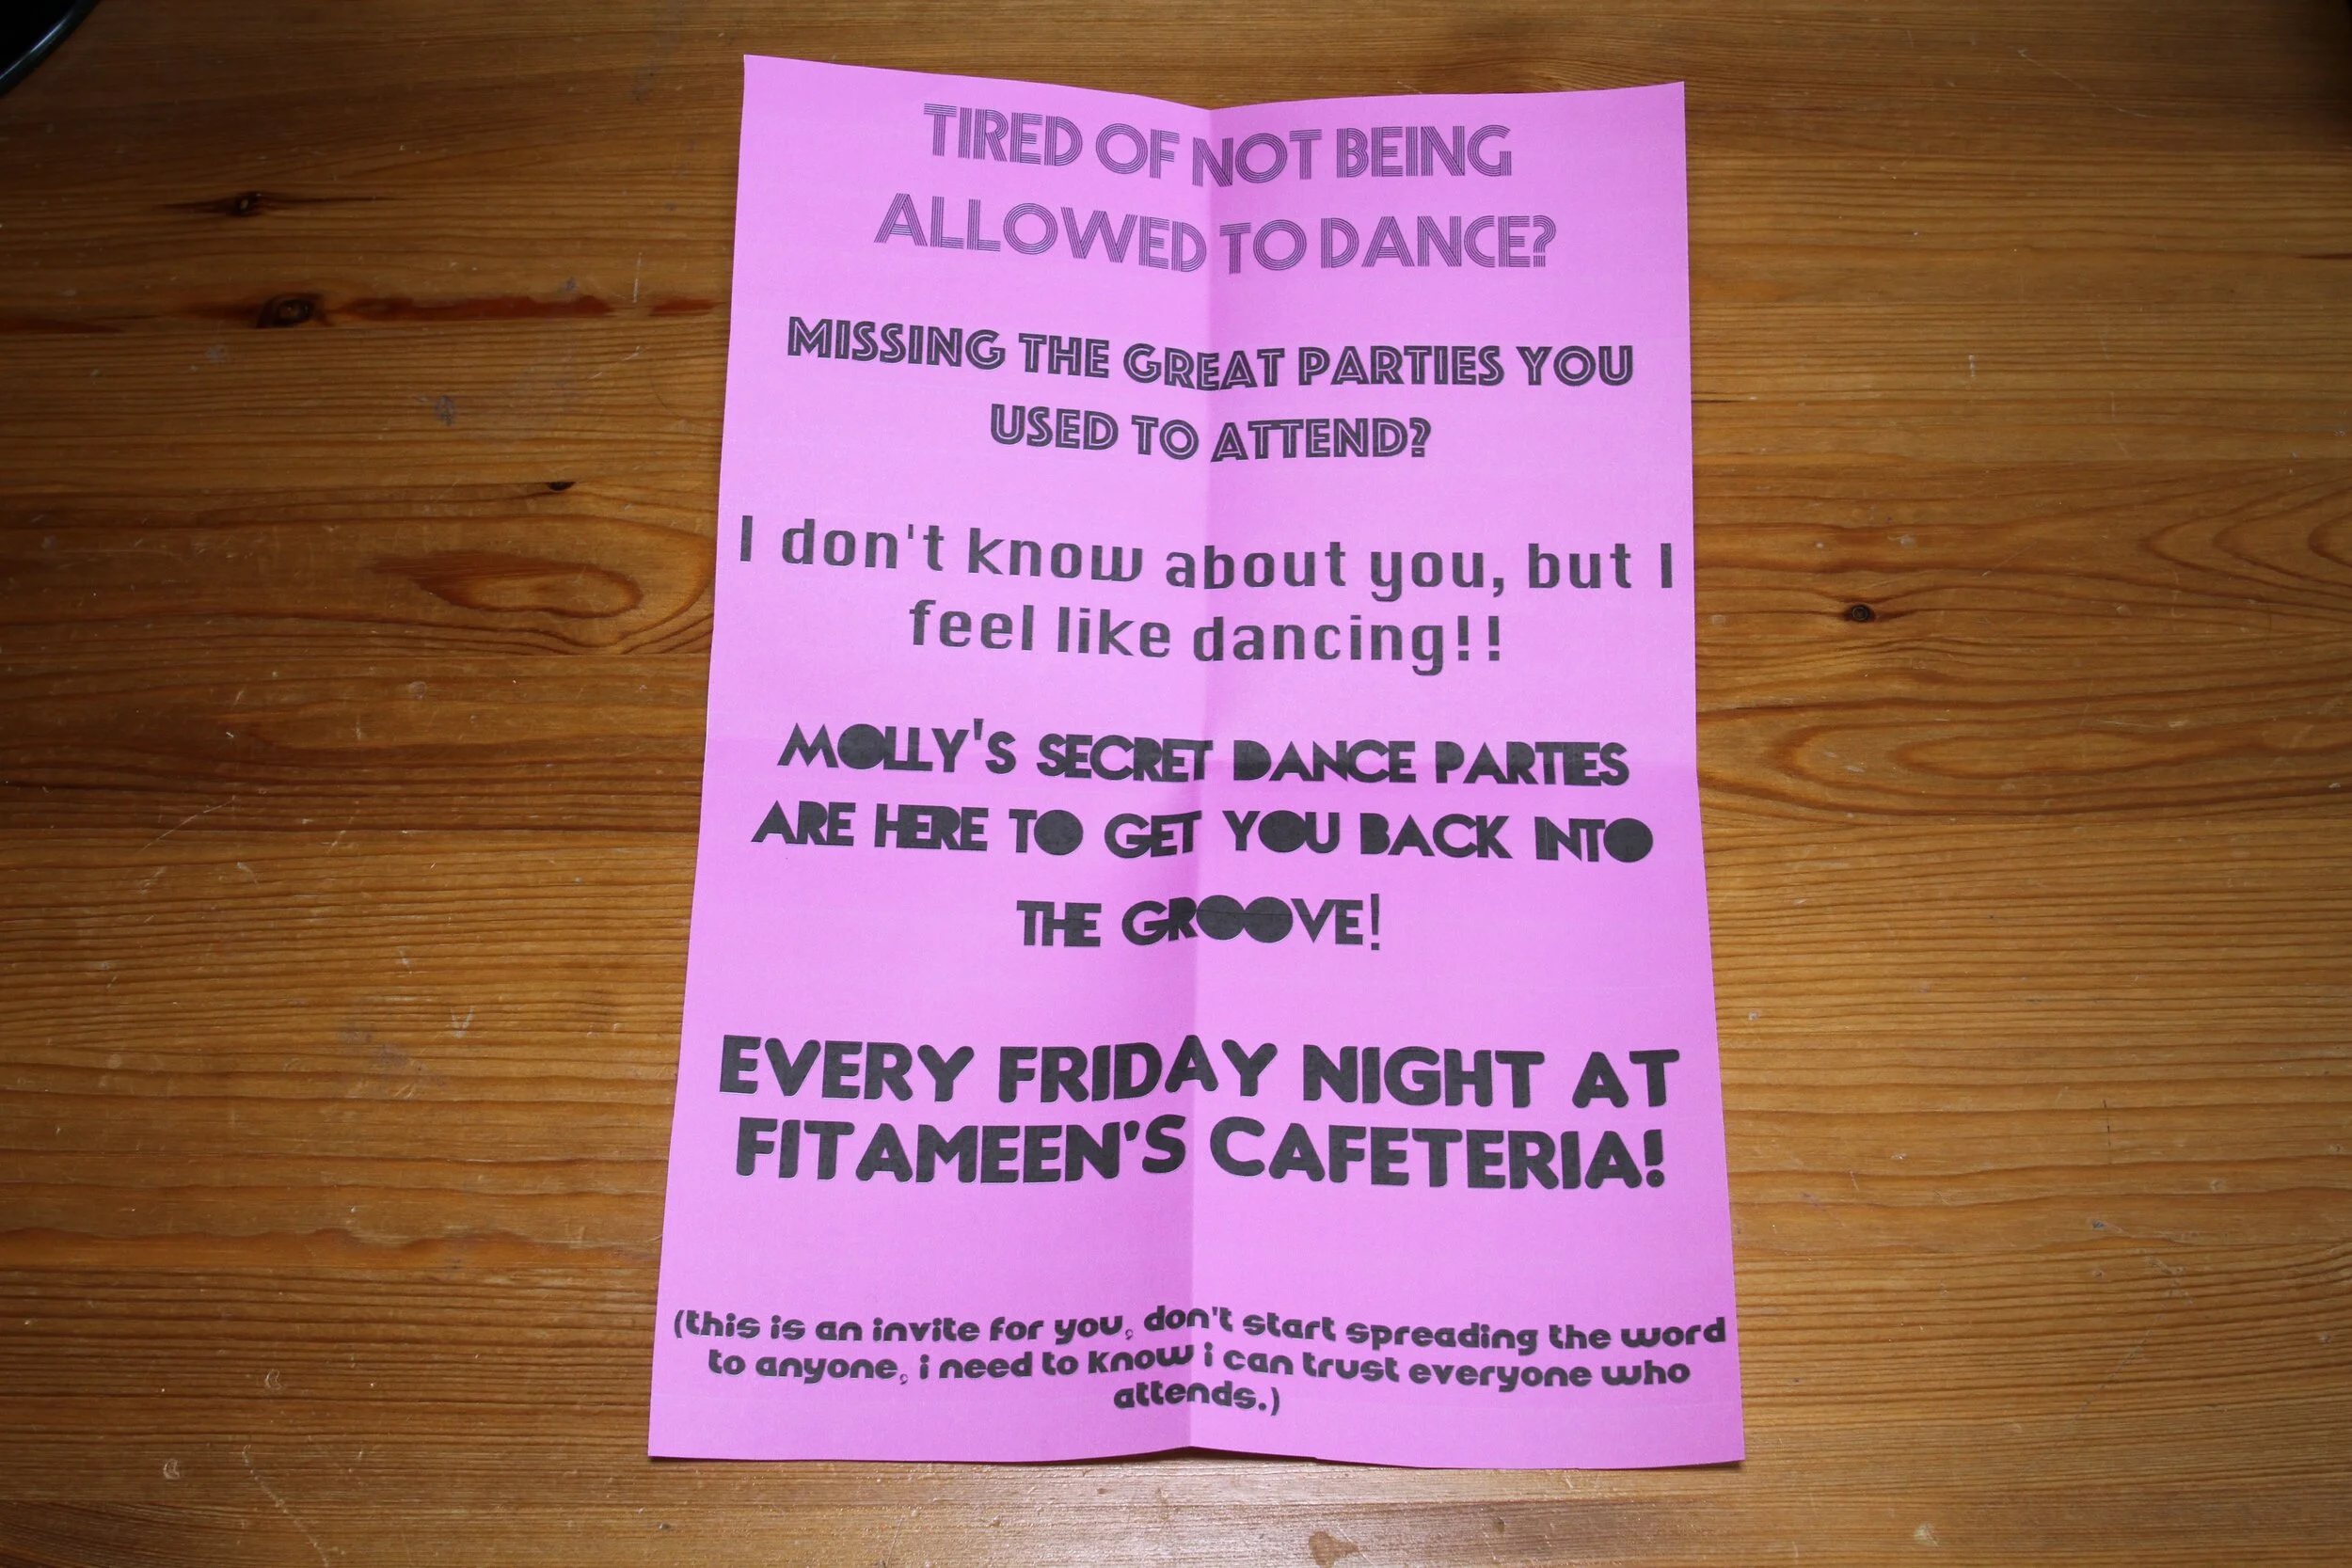 TIRED OF NOT BEING
ALLOWED TO DANCE?
MISSING THE GREAT PARTIES YOU
USED TO ATTEND?
I don't know about you, but I
feel like dancing!!
MOLLY'S SECRET DANCE PARTIES
ARE HERE TO GET YOU BACK INTO
THE GROOVE!
EVERY FRIDAY NIGHT AT
FITAMEEN'S CAFETERIA!
(this is an invite for you, don't start spreading the word
to anyone, i need to know i can trust everyone who
attends.)